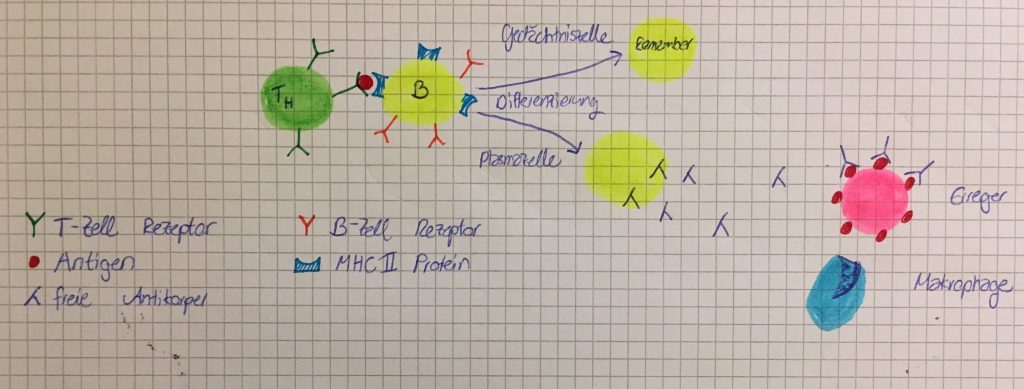 Gedächtniszelle
Remember
TH
B
Differenzierung
Plasmazelle
Erreger
T-Zell Rezeptor
B-Zell Rezeptor
Antigen
MHC II Protein
freie Antikörper
Makrophage